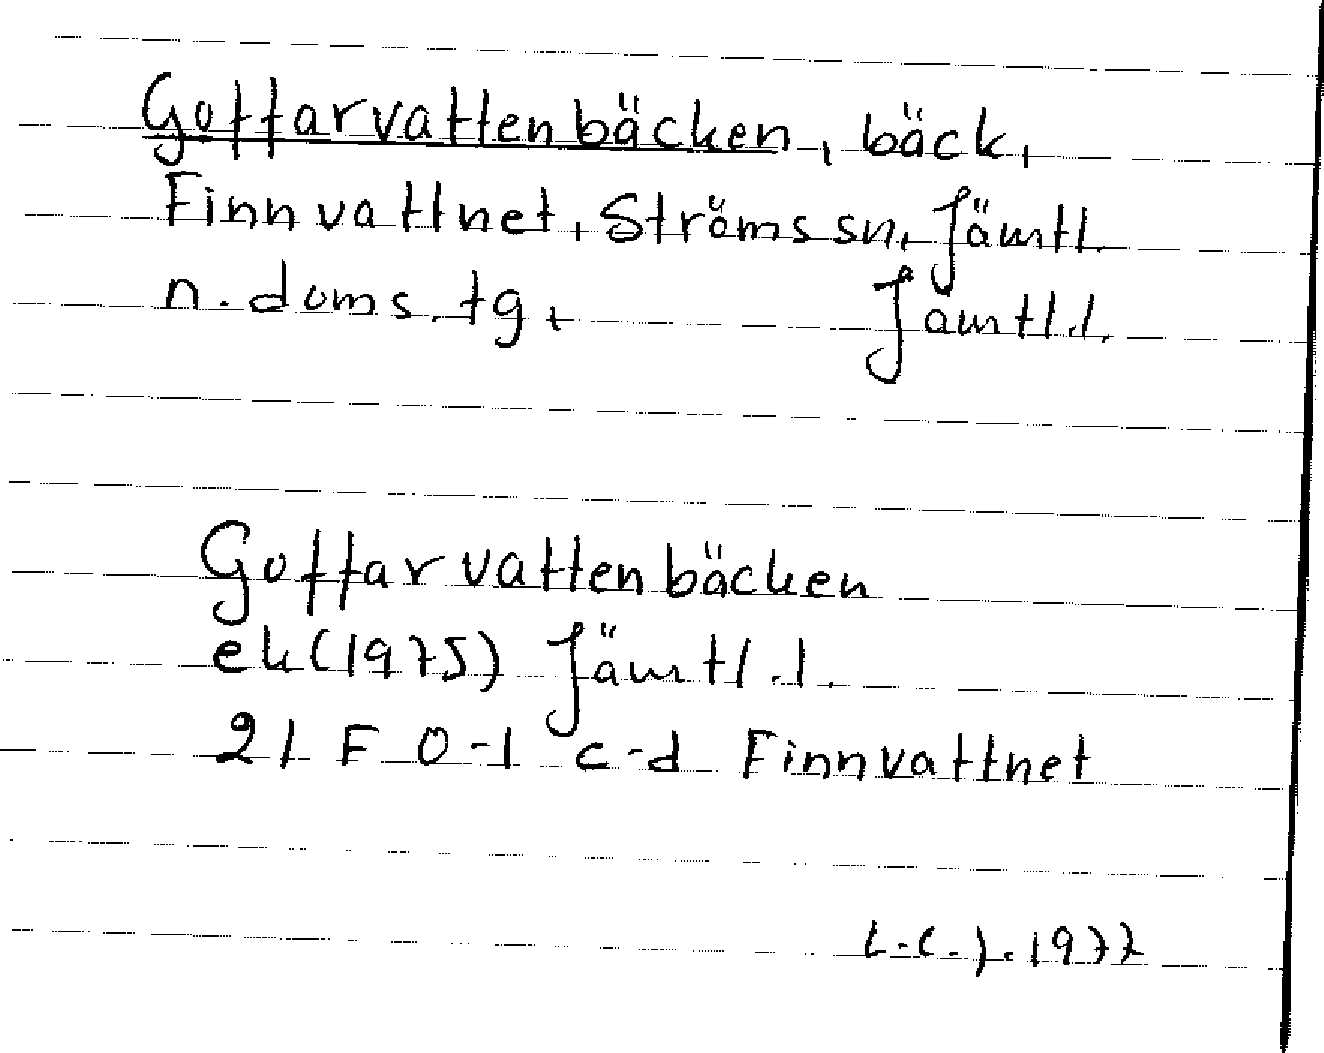 Goffarvattenbäcken, bäck,
Finnvattnet, Ströms sn, Jämtl.
n. doms.tg, Jämtl.l.
Goffarvattenbäcken
ek (1975) Jämtl.l.
21 F 0-1 c-d Finnvattnet
L.C.J. 1977